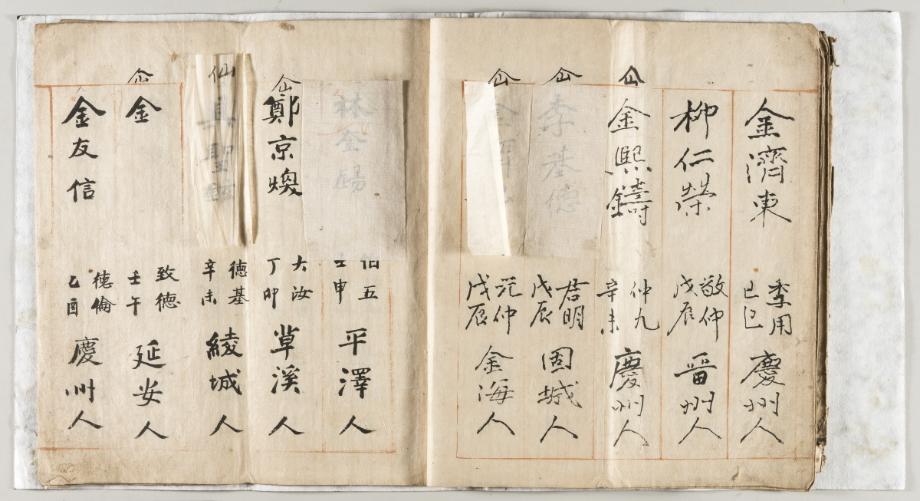 金濟東 季用 己巳 慶州人
柳仁榮 敬仲 戊辰 晋州人
仙 金熙鑄 仲九 辛未 慶州人
仙 李基德 君明 戊辰 固城人
仙 金 元仲 戊辰 金海人
林 伯五 壬申 平澤人
仙 鄭京煥 大汝 丁卯 草溪人
仙 具聖 德基 辛未 綾城人
仙 金 致德 壬午 延安人
金友信 德倫 乙酉 慶州人